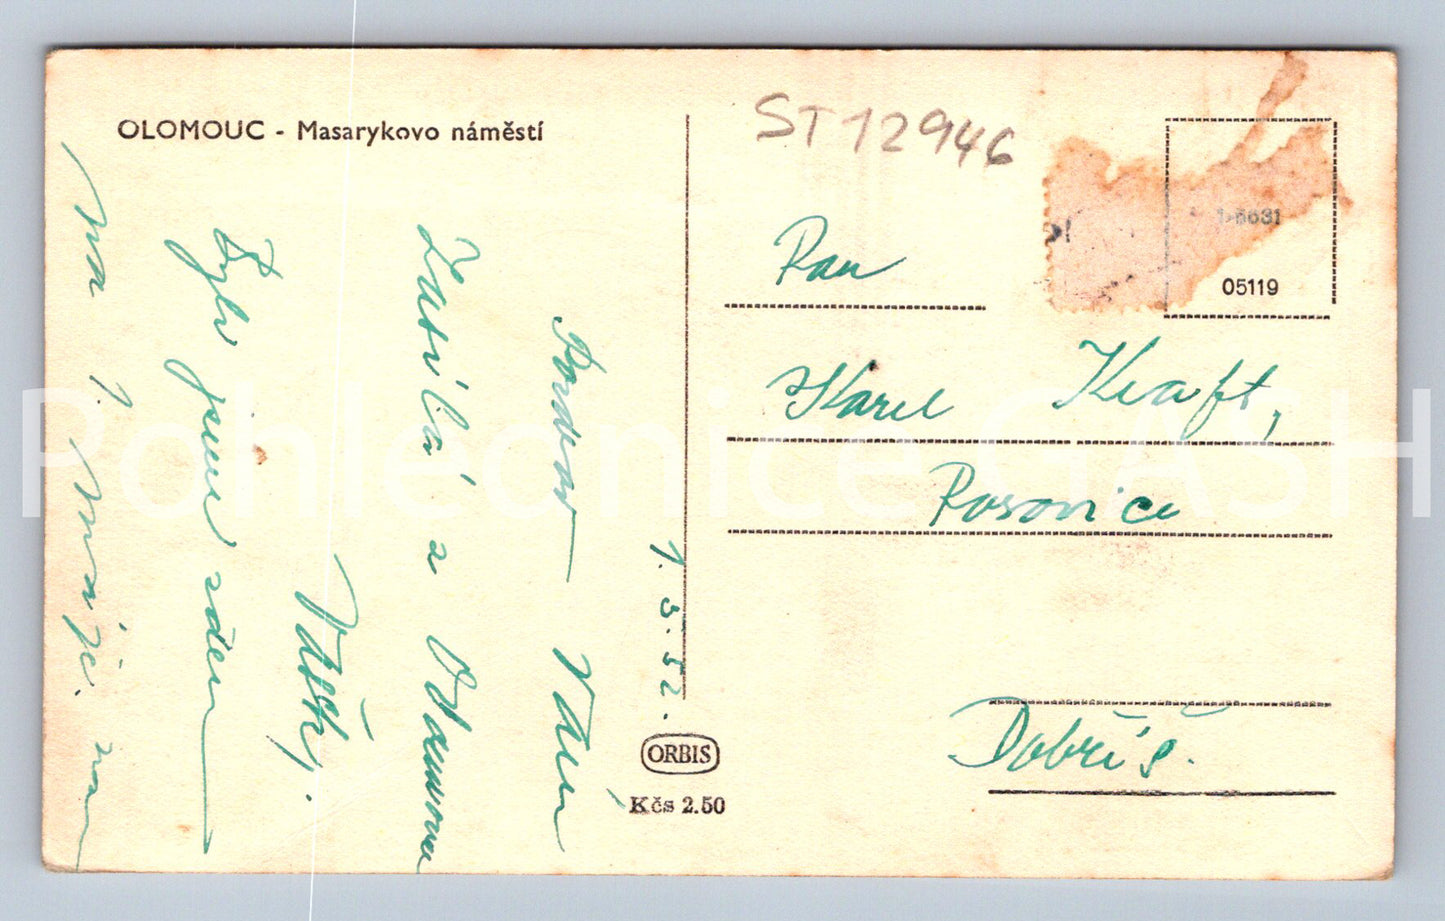 OLOMOUC - Masarykovo náměstí
ST 12946
1>6631
05119
Pan
Karel Kraft,
Rosovice
Dobříš.
1. 5. 52.
Pozdrav Vám
zasílá z Olomouce
Vašk.
Byli jsme zde
na 1. máje.
ORBIS
Kčs 2.50
Pohlednice GASH